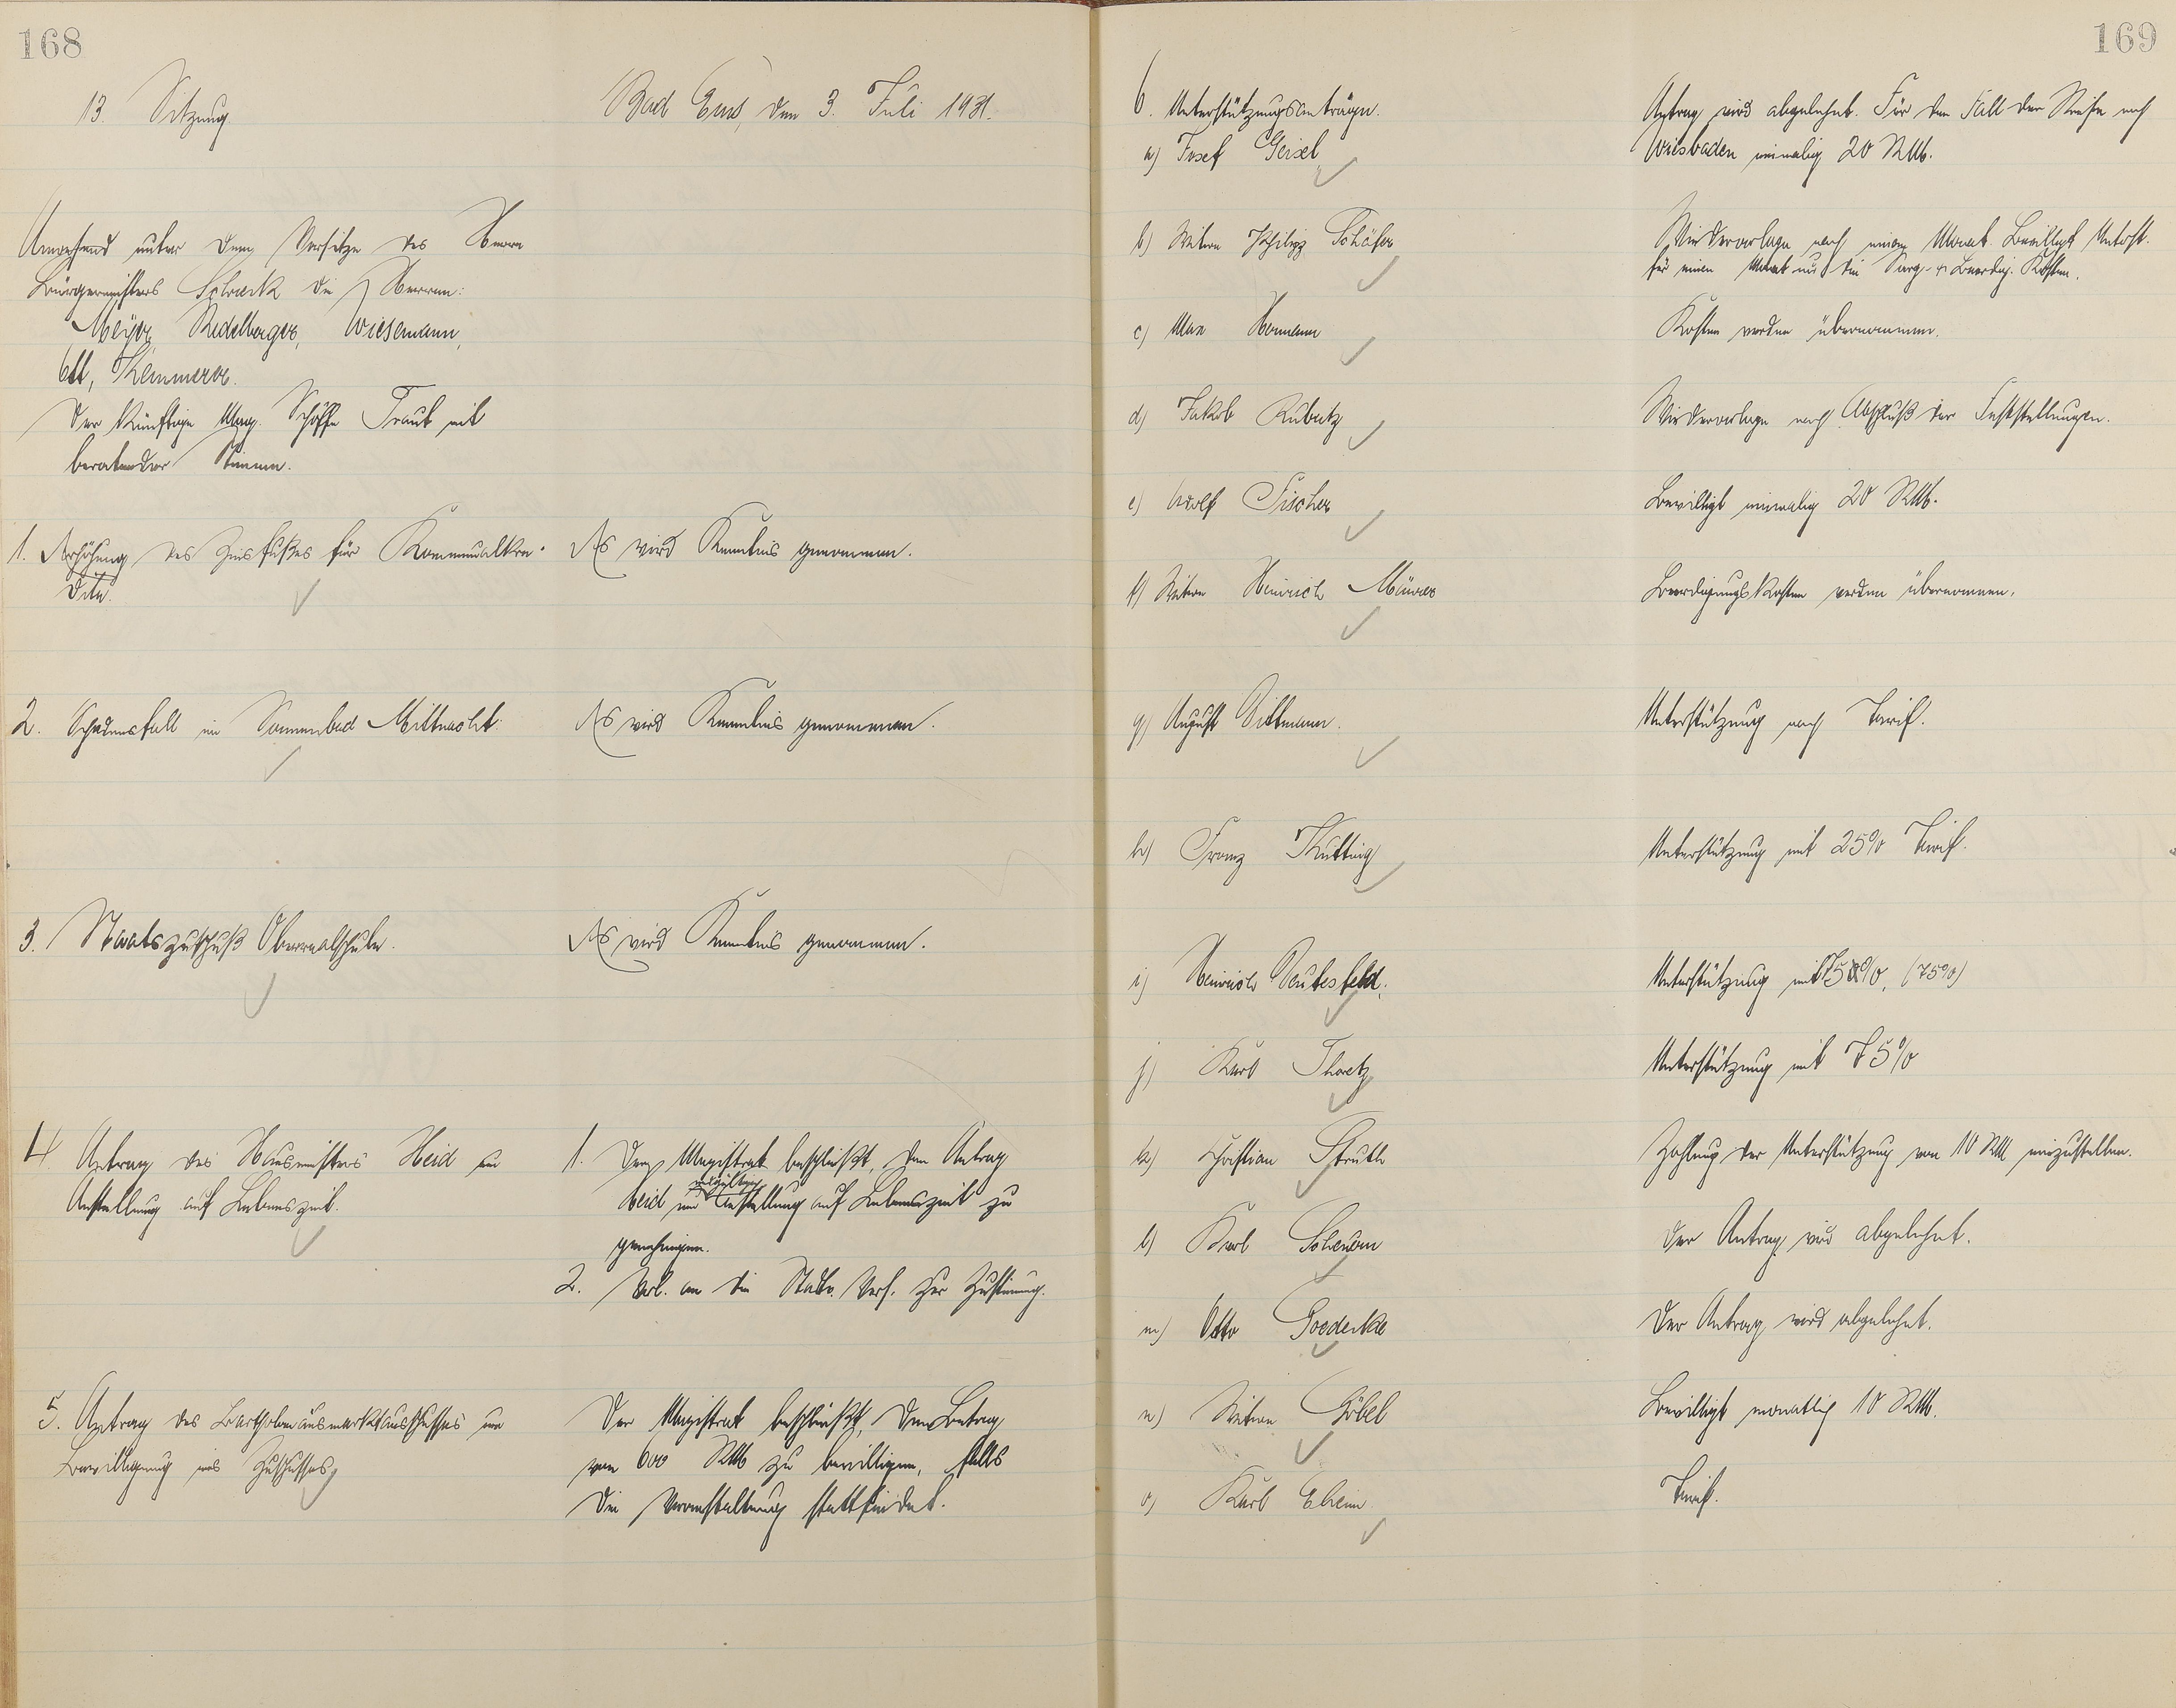 168
13. Sitzung.
Bad Ems, den 3. Juli 1931.
Anwesend unter dem Vorsitze des Herrn
Bürgermeisters Schraeck die Herren:
Meyer, Riedelberger, Wiesemann,
Ott, Kemmerer.
Der künftige Mag. Schöffe Traub mit
beratender Stimme.
1. Erhöhung des Zinsfußes für Kommunalkre-
dite.
Es wird Kenntnis genommen.
2. Schadensfall im Sonnenbad Mittnacht.
Es wird Kenntnis genommen.
3. Staatszuschuß Oberrealschule.
Es wird Kenntnis genommen.
4. Antrag des Hausmeisters Heid um
Anstellung auf Lebenszeit.
1. Der Magistrat beschließt, dem Antrag
Heid um endgültige Anstellung auf Lebenszeit zu
genehmigen.
2. Vorl. an die Stadtv. Vers. zur Zustimmung.
5. Antrag des Bartholomäusmarktausschusses um
Bewilligung eines Zuschusses.
Der Magistrat beschließt, den Betrag
von 600 RM zu bewilligen, falls
die Veranstaltung stattfindet.
169
6. Unterstützungsanträge.
a) Josef Geisel
Antrag wird abgelehnt. Für den Fall der Reise nach
Wiesbaden einmalig 20 RM.
b) Witwe Philipp Schäfer
Wiedervorlage nach einem Monat. Bewilligt Unterst.
für einen Monat und die Sarg- u. Beerdig. Kosten.
c) Max Hermann
Kosten werden übernommen.
d) Jakob Kubatz
Wiedervorlage nach Abschluß der Feststellungen.
e) Adolf Fischer
Bewilligt einmalig 20 RM.
f) Witwe Heinrich Maurer
Beerdigungskosten werden übernommen.
g) August Dittmann.
Unterstützung nach Tarif.
h) Franz Huttig
Unterstützung mit 25% Tarif.
i) Heinrich Deutesfeld.
Unterstützung mit 75%. (75%)
j) Karl Thoretz
Unterstützung mit 75%
k) Christian Struth
Zahlung der Unterstützung von 10 RM einzustellen.
l) Karl Scheuern
Der Antrag wird abgelehnt.
m) Otto Goedecke
Der Antrag wird abgelehnt.
n) Witwe Göbel
Bewilligt monatlich 10 RM.
o) Karl Ehein
Tarif.